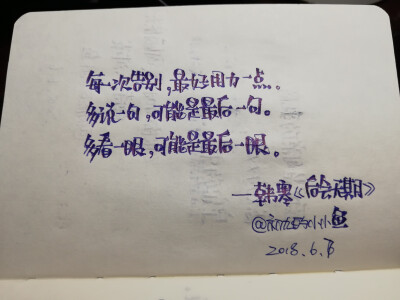 每一次告别,最好用力一点。
多说一句,可能是最后一句。
多看一眼,可能是最后一眼。
—韩寒《后会无期》
小小鱼
2018.6.